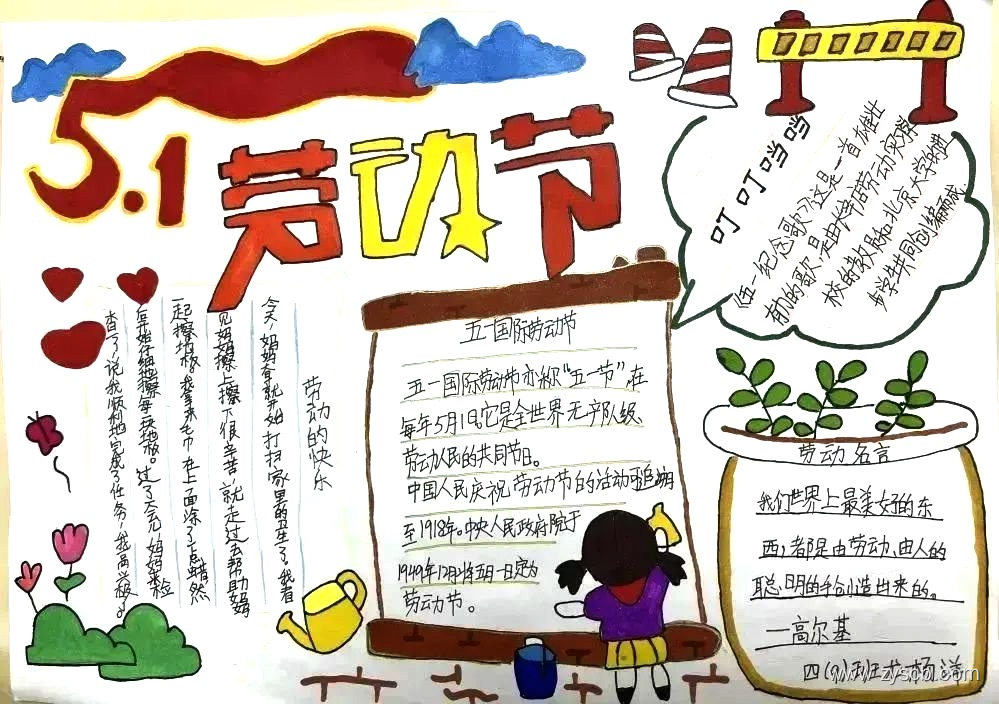 5.1
劳动节
叮叮当当
《五一纪念歌》这是一首雄壮
有力的歌,是由长辛店劳动实习学
校的教员和北京大学的进
步学生共同创编而成
劳动的快乐
今天,妈妈有就开始打扫家里的卫生了,我看
见妈妈擦上擦下很辛苦,就走过去帮助妈妈
一起擦地板。我拿来毛巾在上面涂了点蜡,然
后开始仔细地擦每块地板。过了会儿,妈妈来检
查了,说我顺利地完成了任务,我高兴极了。
五一国际劳动节
五一国际劳动节亦称“五一节”,在
每年5月1日。它是全世界无产队级、
劳动人民的共同节日。
中国人民庆祝劳动节的活动可追溯
至1918年。中央人民政府院于
1949年12月将五月一日定为
劳动节。
劳动名言
我们世界上最美好的东
西,都是由劳动、由人的
聪明的手创造出来的。
—高尔基
四(9)班 杨洋
www.zyscol.com